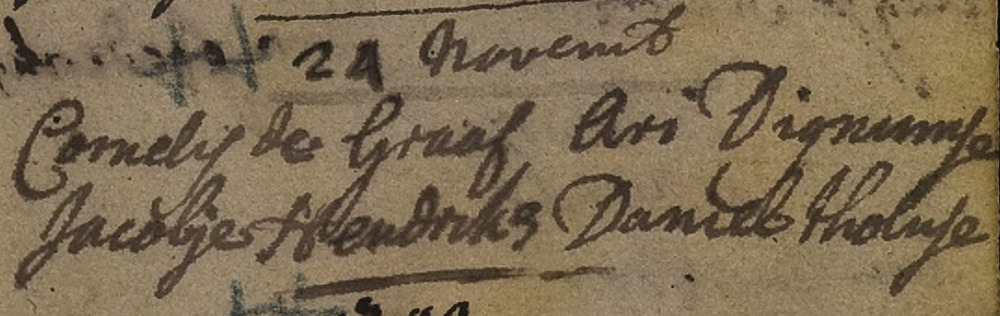 24 Novemb
Cornelis de Graaf Ari Dignumse
Jacobje Hendriks Daniel tholnse